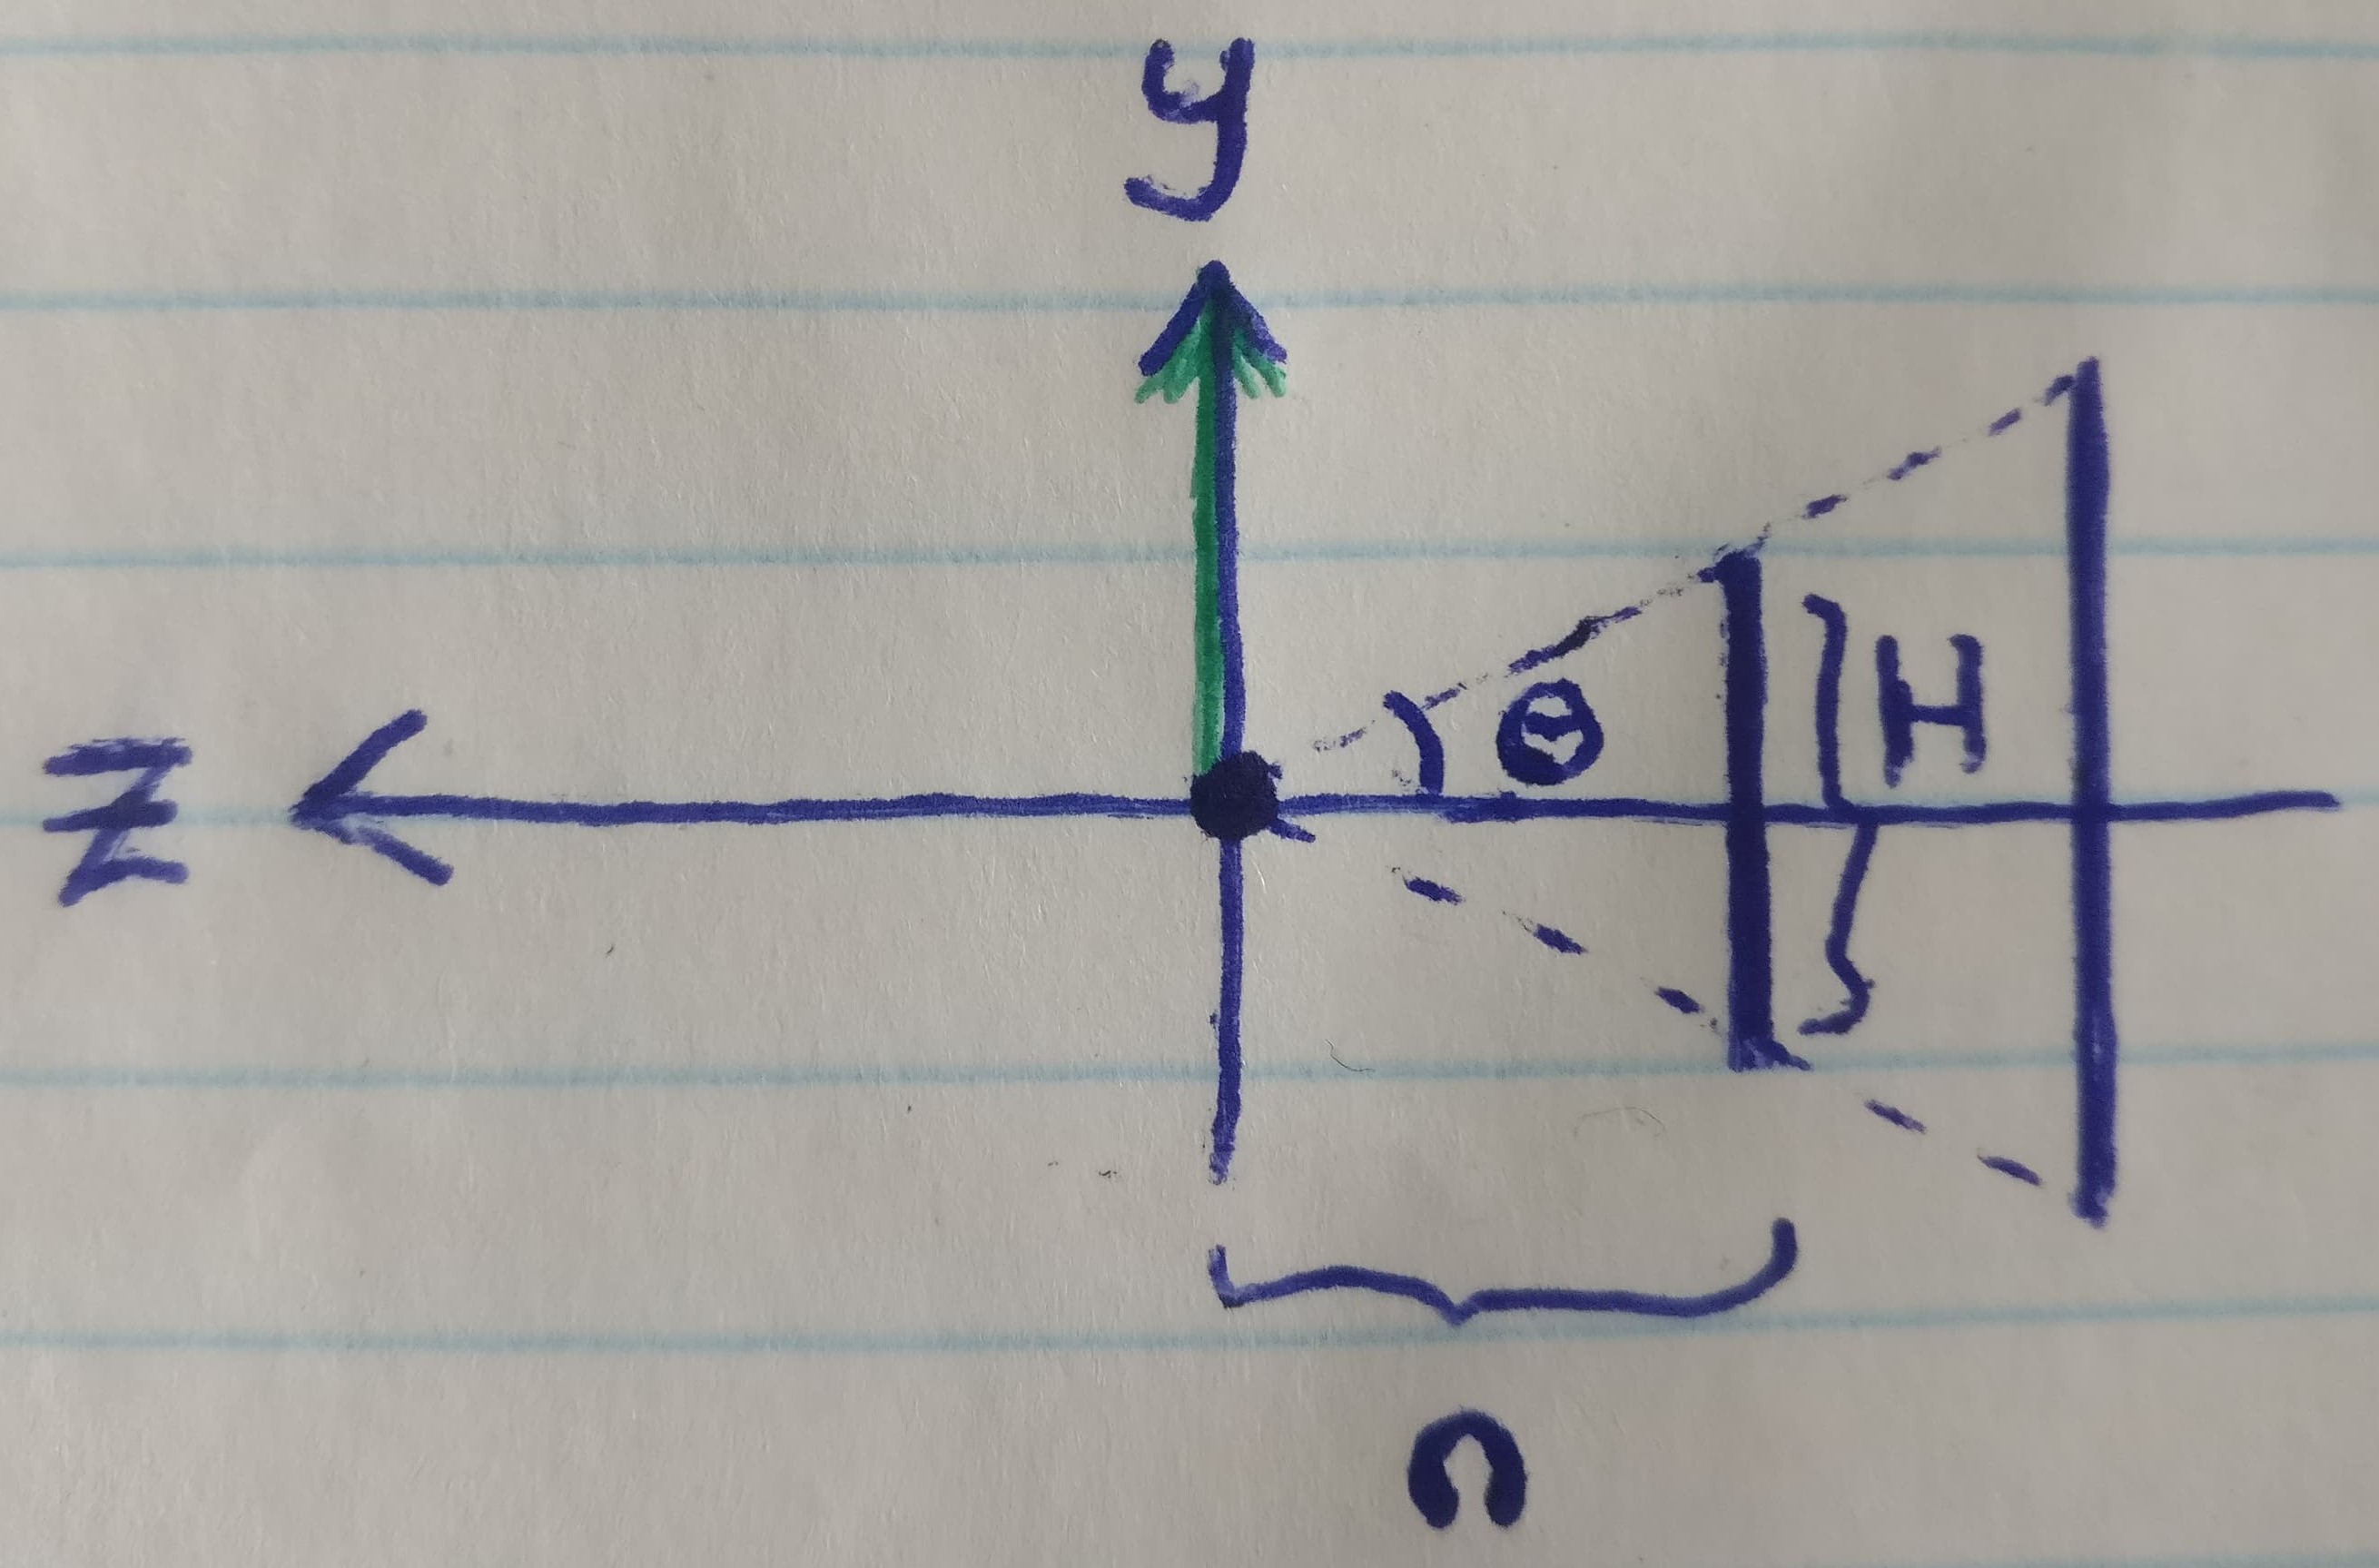 y
Z
Θ
H
n